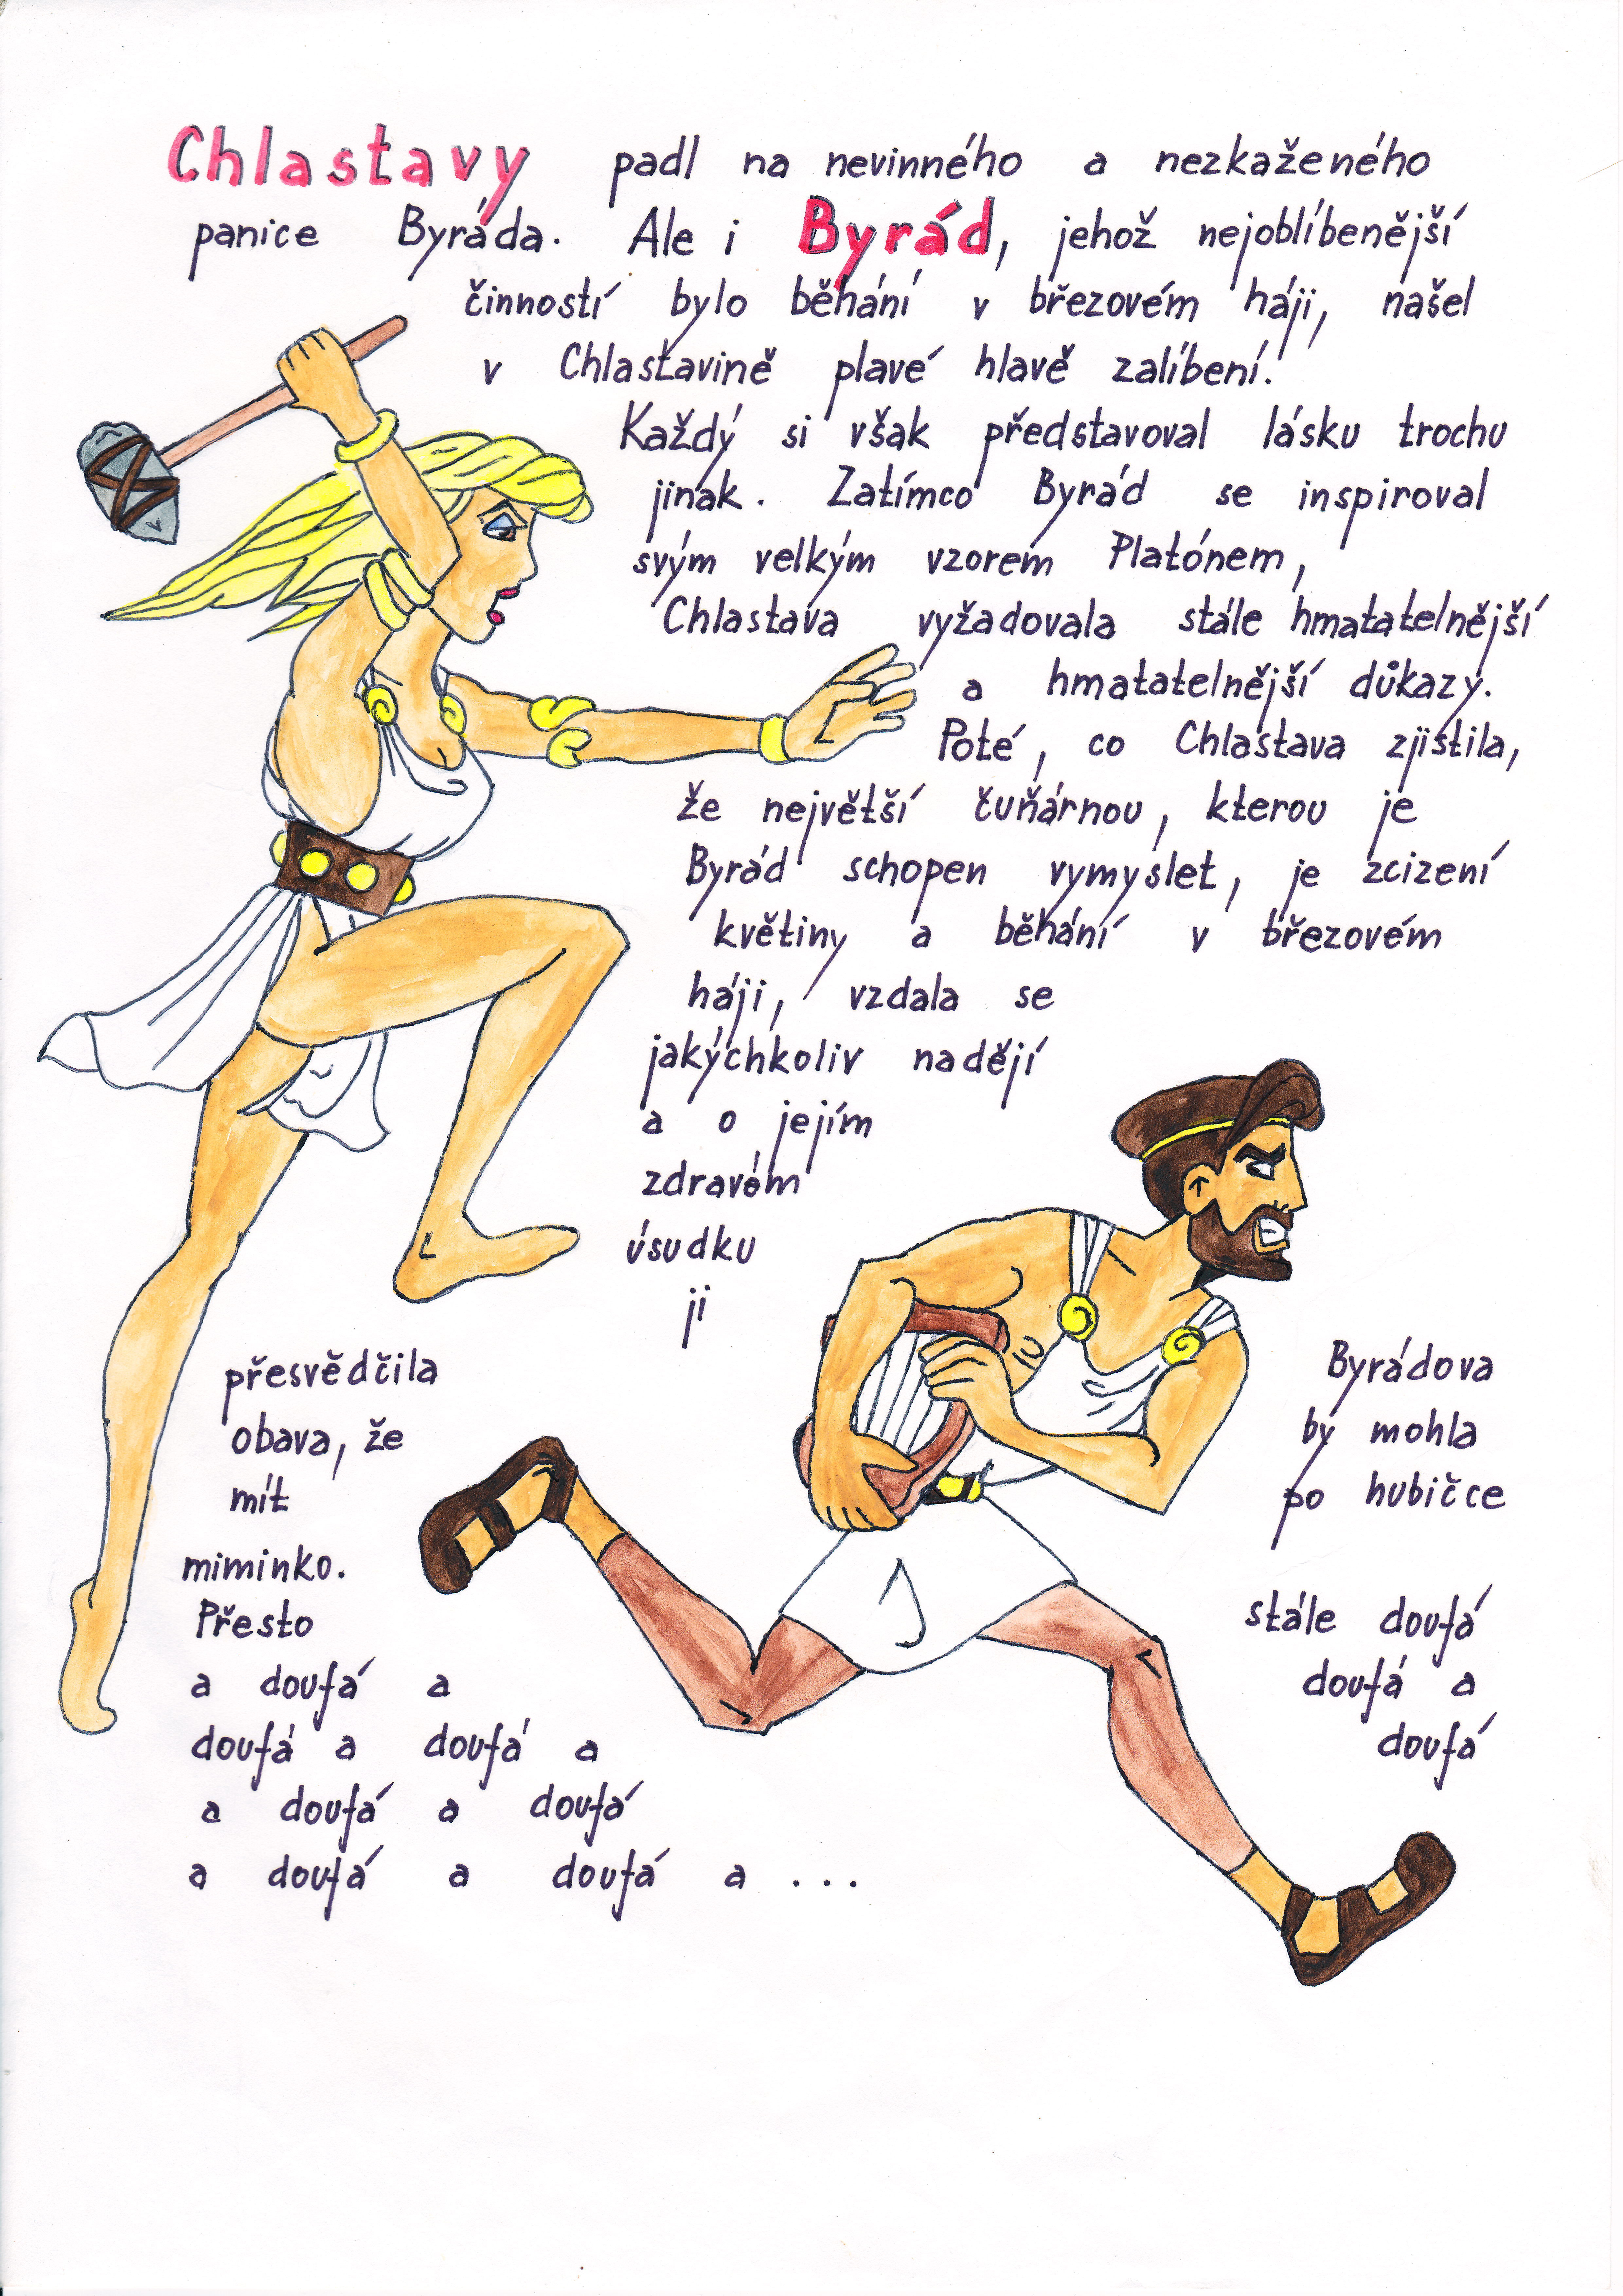 Chlastavy padl na nevinného a nezkaženého
panice Byráda. Ale i Byrád, jehož nejoblíbenější
činností bylo běhání v březovém háji, našel
v Chlastavině plavé hlavě zalíbení.
Každý si však představoval lásku trochu
jinak. Zatímco Byrád se inspiroval
svým velkým vzorem Platónem,
Chlastava vyžadovala stále hmatatelnější
a hmatatelnější důkazy.
Poté, co Chlastava zjistila,
že největší čuňárnou, kterou je
Byrád schopen vymyslet, je zcizení
květiny a běhání v březovém
háji, vzdala se
jakýchkoliv nadějí
a o jejím
zdravém
úsudku
ji
přesvědčila Byrádova
obava, že by mohla
mít po hubičce
miminko.
Přesto stále doufá
a doufá a doufá a
doufá a doufá a doufá
a doufá a doufá
a doufá a doufá a ...